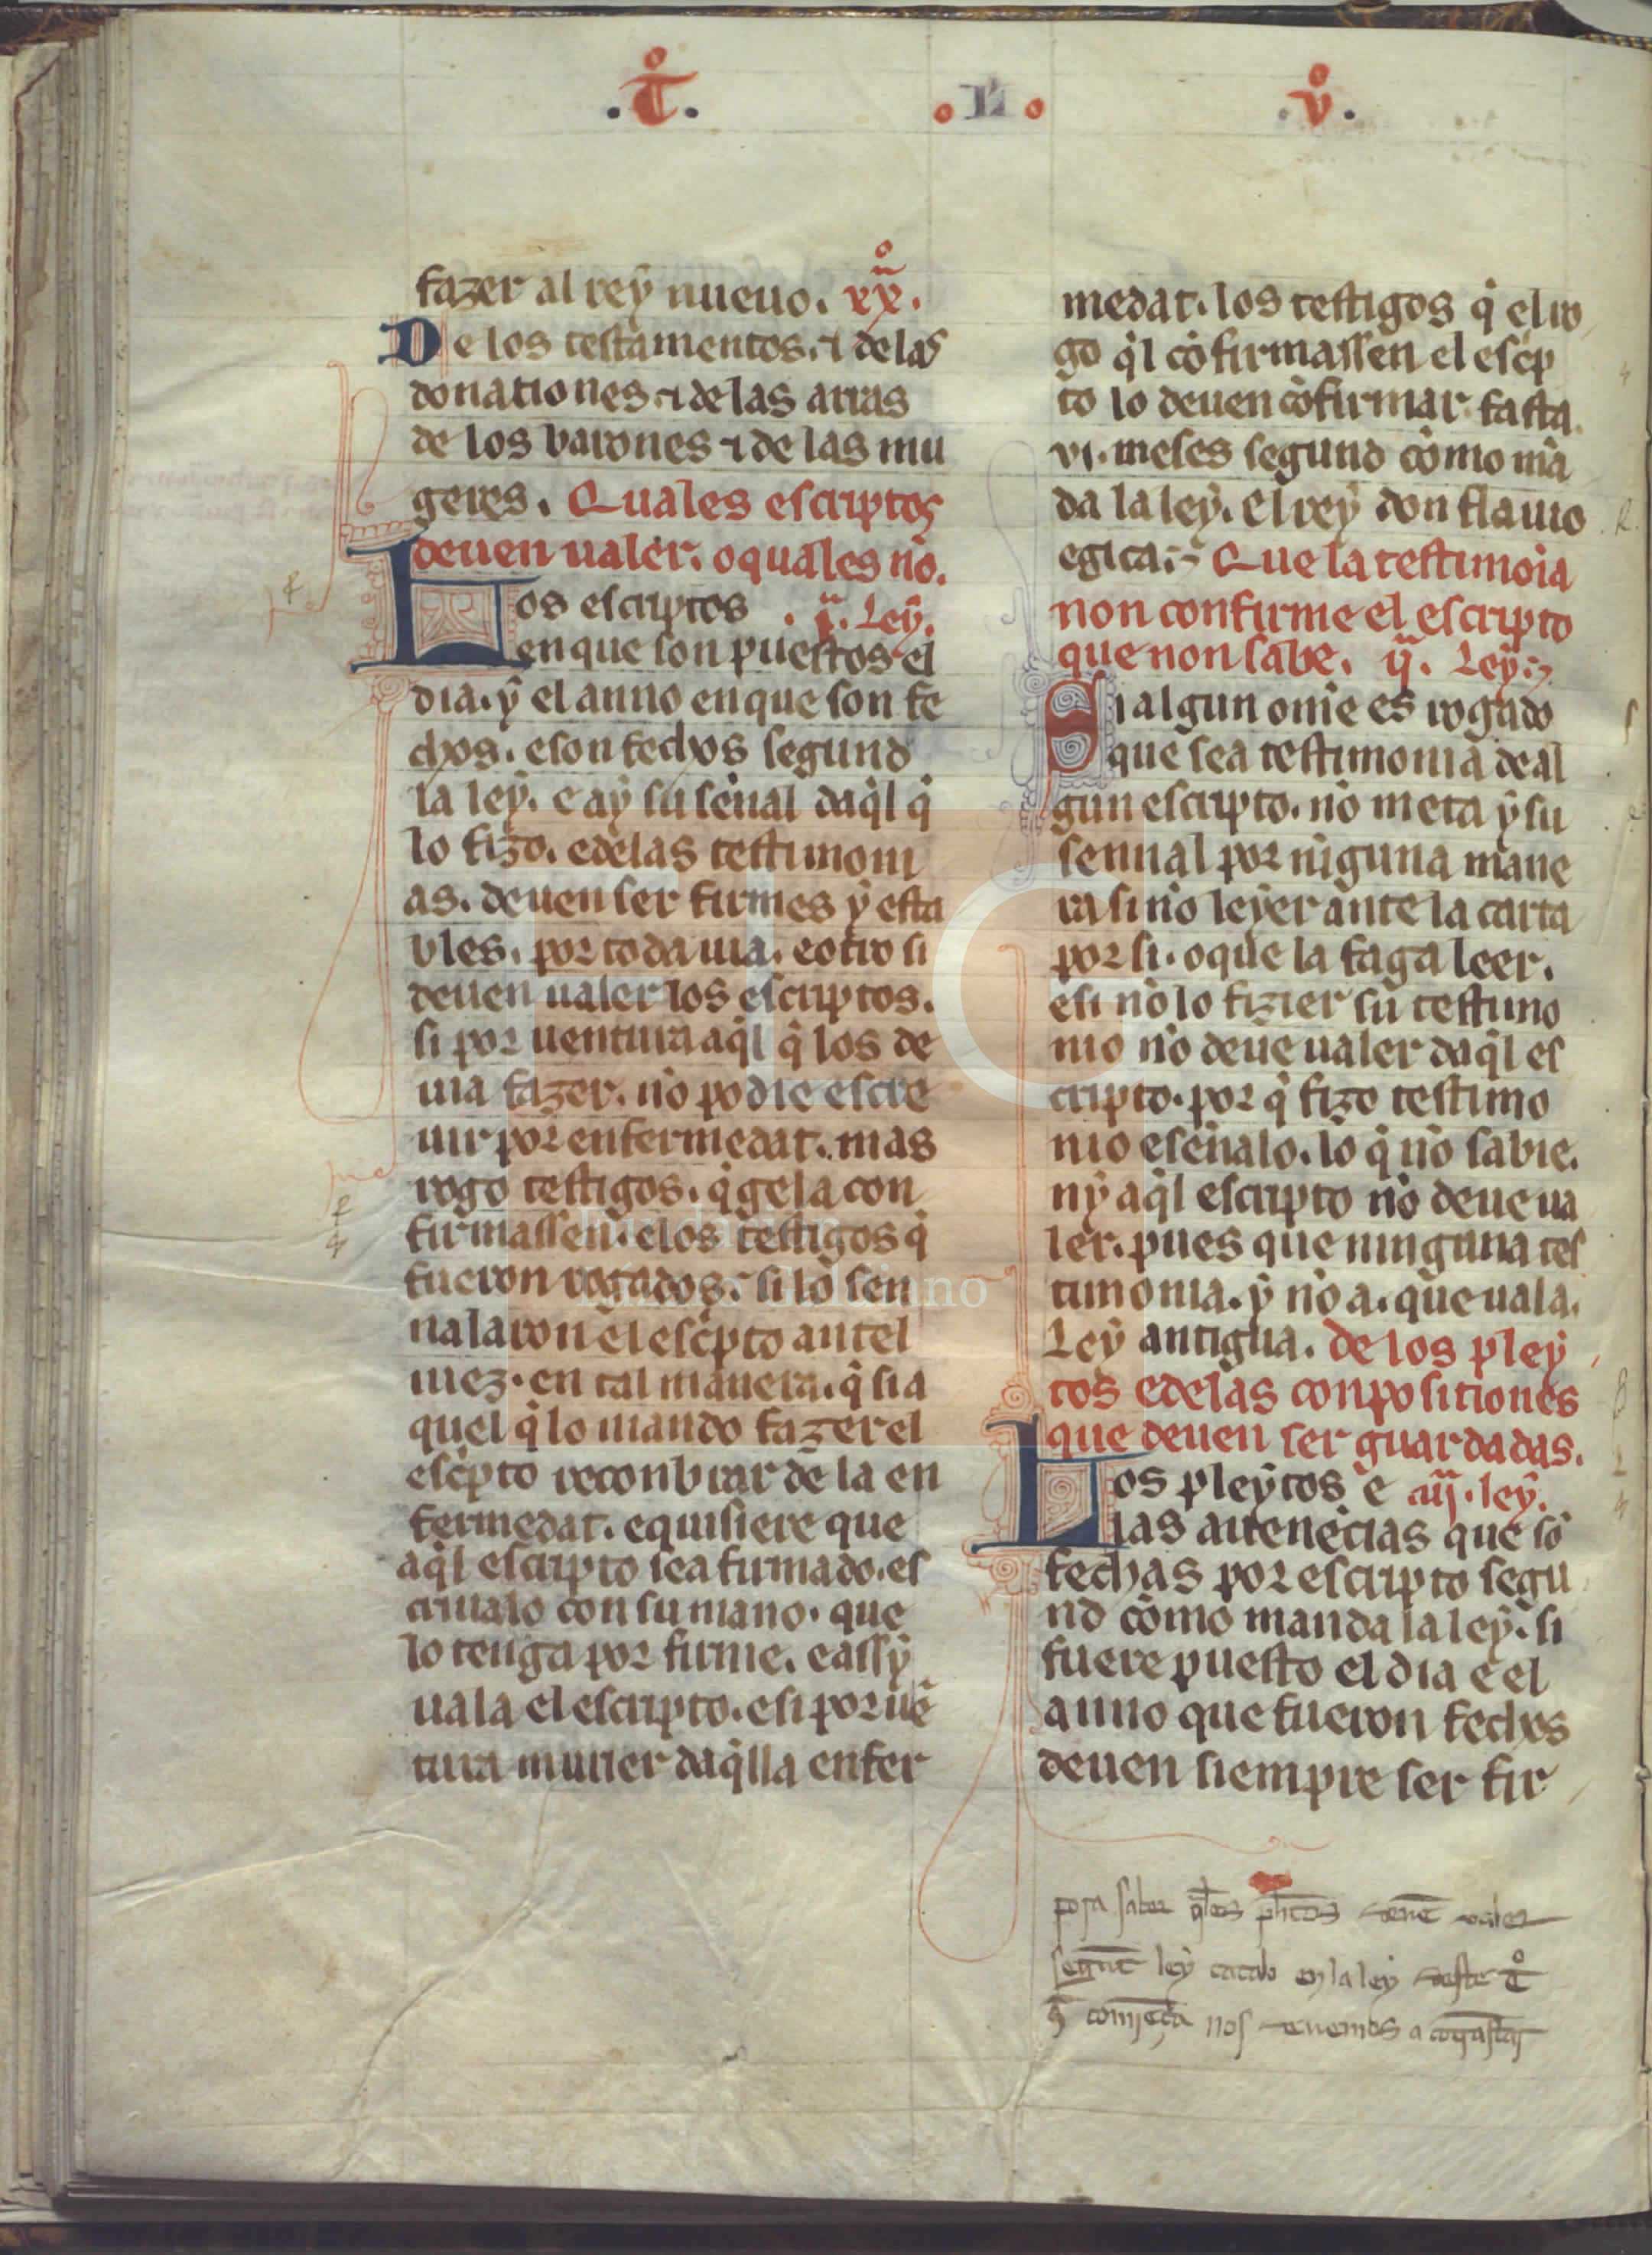 .T.º .II. .v.º
fazer al rey nueuo. xx̃º.
De los testamentos. ⁊ de las
donationes. ⁊ de las arras
de los barones ⁊ de las mu
geres. Quales escriptos
deuen ualer. o quales nõ.
Los escriptos . j̃. Ley.
en que son puestos el
dia. y el anno en que son fe
chos. e son fechos segund
la ley. e ay su señal daq̃l q̃
lo fizo. e de las testimoni
as. deuen ser firmes y esta
bles. por toda uia. e otro si
deuen ualer los escriptos.
si por uentura aq̃l q̃ los de
uia fazer. nõ podie escre
uir por enfermedat. mas
rogo testigos. q̃ gela con
firmassen. e los testigos q̃
fueron rogados. si lo sen
nalaron el esc̃pto antel
iuez. en tal manera. q̃ si a
quel q̃ lo mando fazer el
esc̃pto reconbrar de la en
fermedat. e quisiere que
aq̃l escripto sea firmado. es
criualo con su mano. que
lo tenga por firme. e assy
uala el escripto. e si por uẽ
tura murier daq̃lla enfer
medat. los testigos q̃ el ro
go q̃l cõfirmassen el esc̃p
to lo deuen cõfirmar fasta
vi. meses segund cõmo mã
da la ley. el rey don flauio
egica. Que la testimoĩa
non confirme el escripto
que non sabe. ij̃. Ley.
Si algun om̃e es rogado
que sea testimonia de al
gun escripto. nõ meta y su
sennal por nĩguna mane
ra si nõ leyer ante la carta
por si. o que la faga leer.
e si nõ lo fizier su testimo
nio nõ deue ualer daq̃l es
cripto. por q̃ fizo testimo
nio e señalo. lo q̃ nõ sabie.
ny aq̃l escripto nõ deue ua
ler. pues que ninguna tes
timonia. y nõ a. que uala.
Ley antigua. de los pley
tos e de las conpositiones
que deuen ser guardadas.
Los pleytos e iij̃. ley.
las auenẽcias que sõ
fechas por escripto segu
nd cõmo manda la ley. si
fuere puesto el dia e el
anno que fueron fechos
deuen siempre ser fir
pora saber q̃les pl̃ictos deuẽ valer
segunt ley catad en la ley deste tº
q̃ comjẽça nos deuemos a